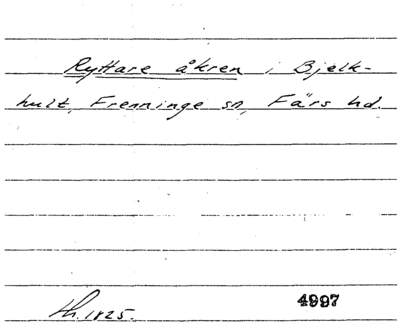 Ryttare åkren i Bjelk-
hult, Frenninge sn, Färs hd.
th. 1825.
4997